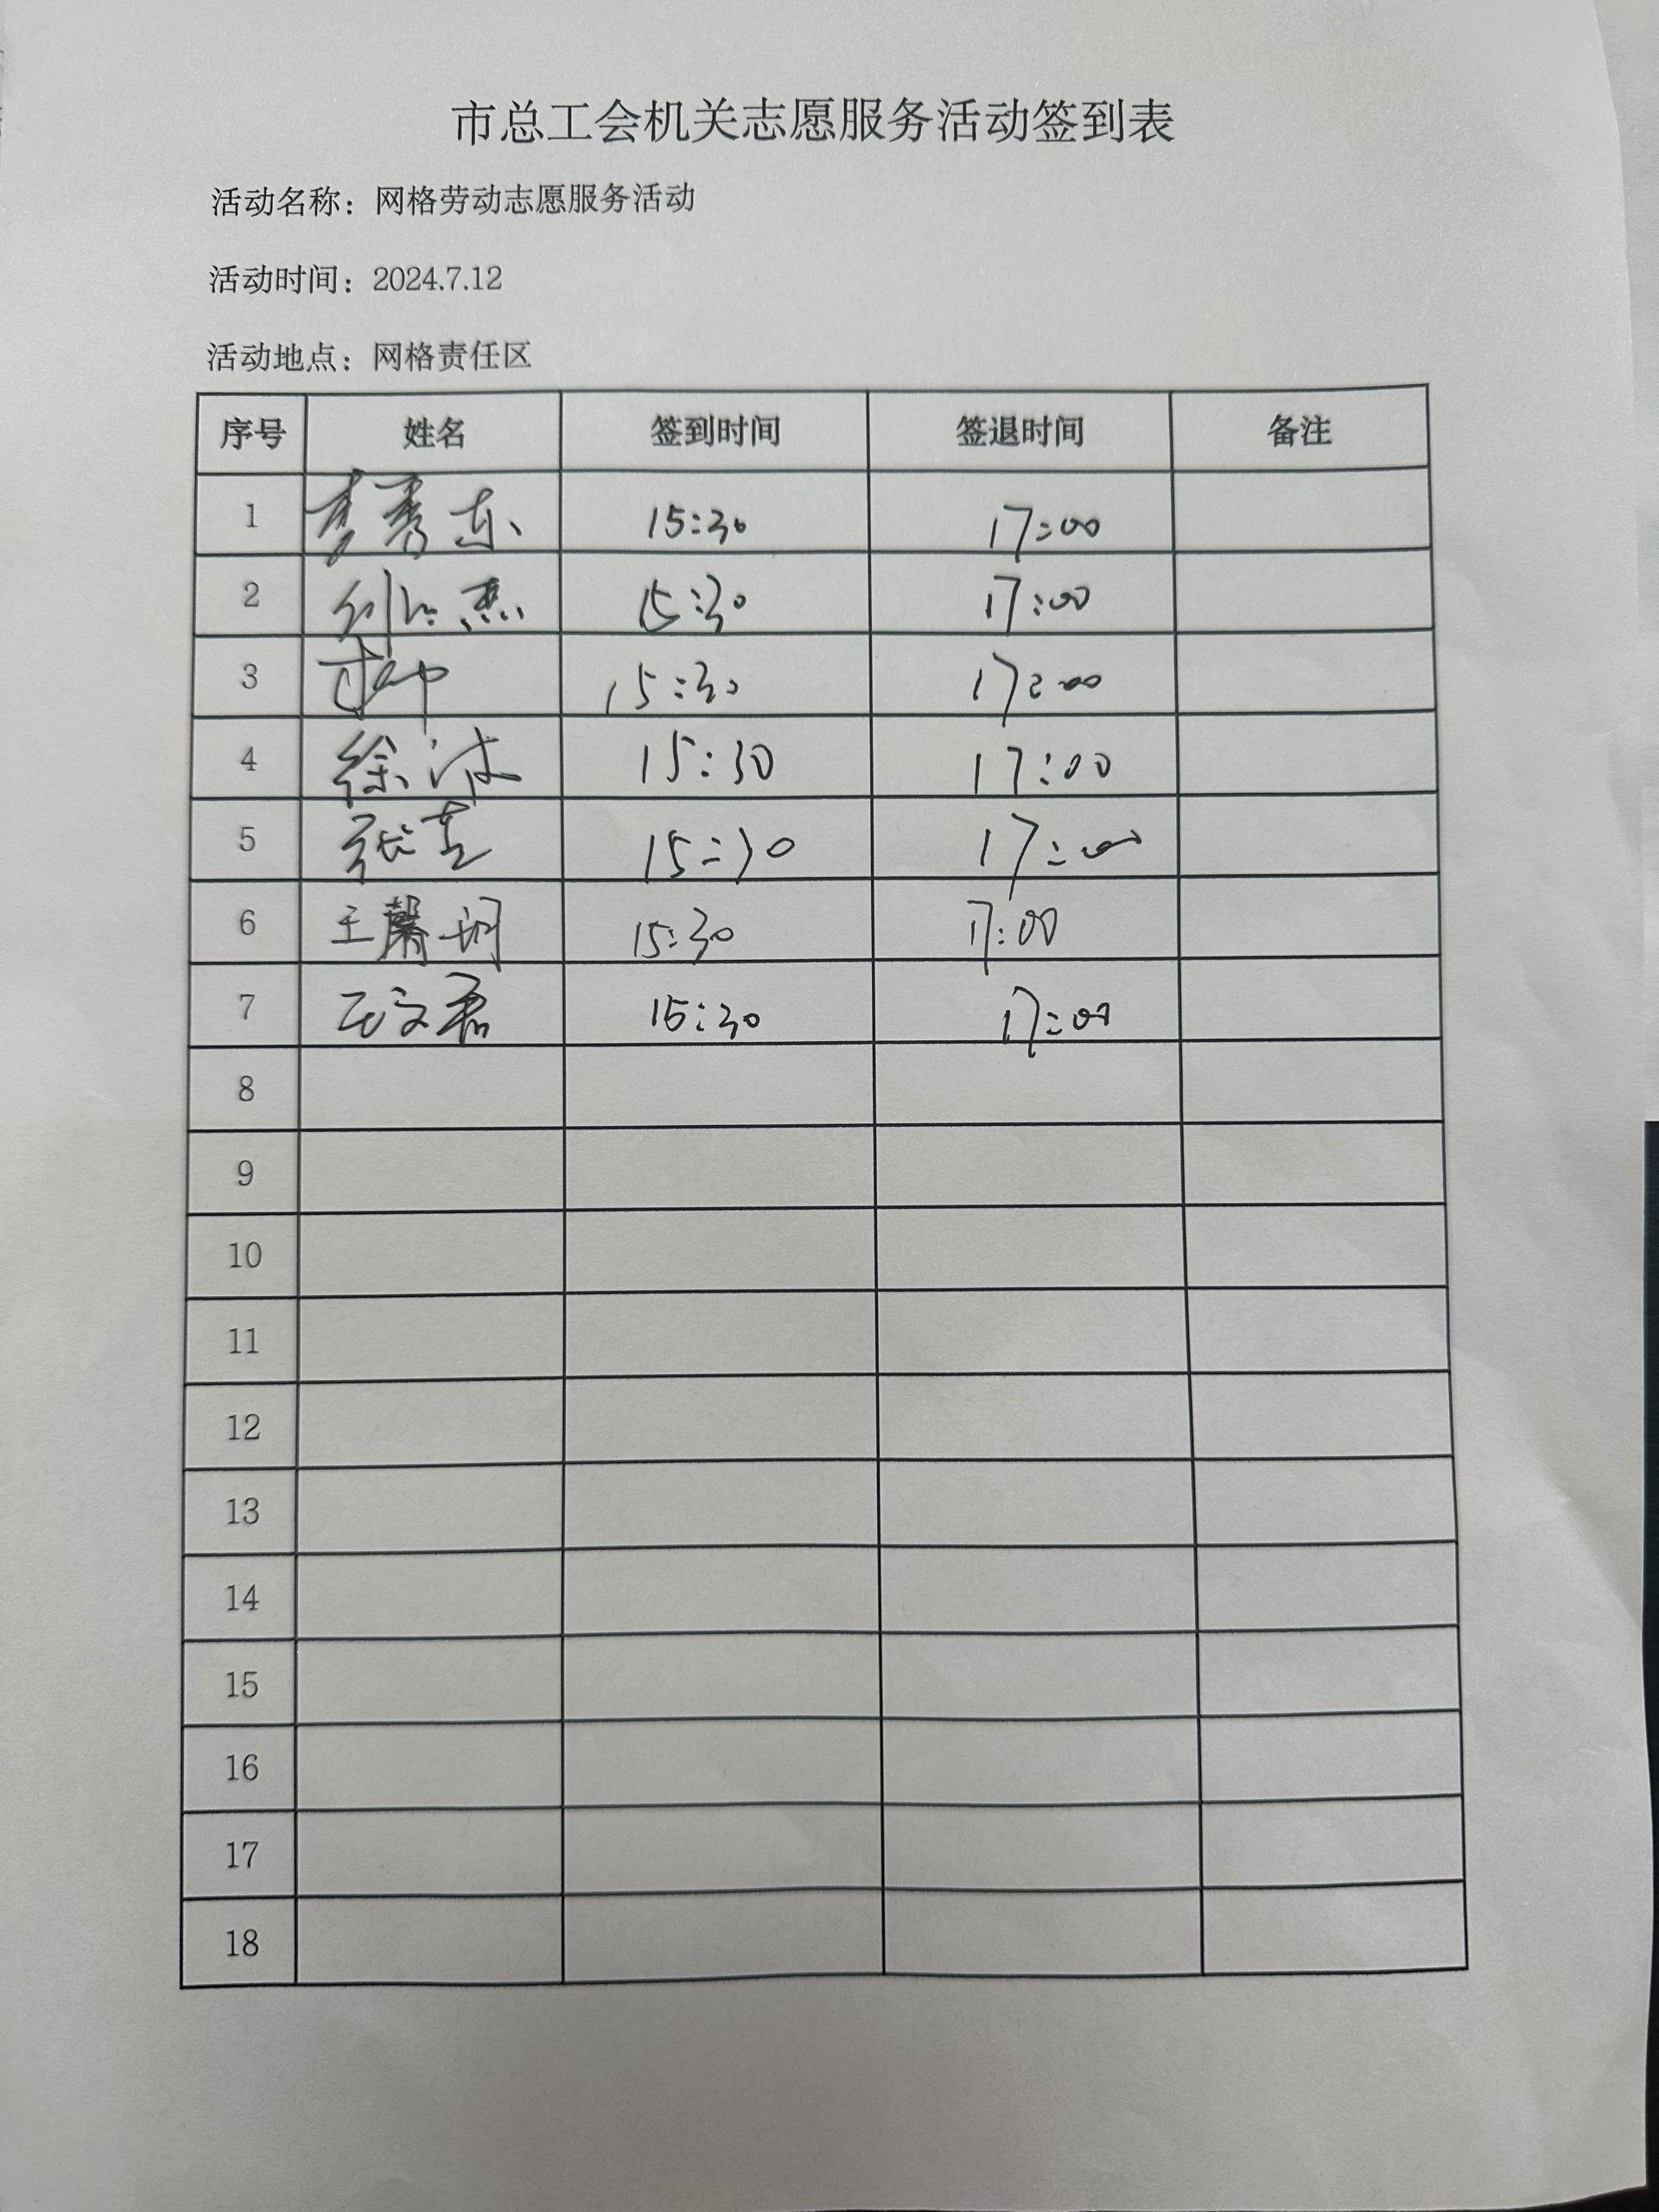 市总工会机关志愿服务活动签到表
活动名称：网格劳动志愿服务活动
活动时间：2024.7.12
活动地点：网格责任区
序号 姓名 签到时间 签退时间 备注
1 李秀东 15:30 17:00
2 15:30 17:00
3 15:30 17:00
4 徐波 15:30 17:00
5 15:30 17:00
6 王馨玥 15:30 17:00
7 王文君 15:30 17:00
8
9
10
11
12
13
14
15
16
17
18